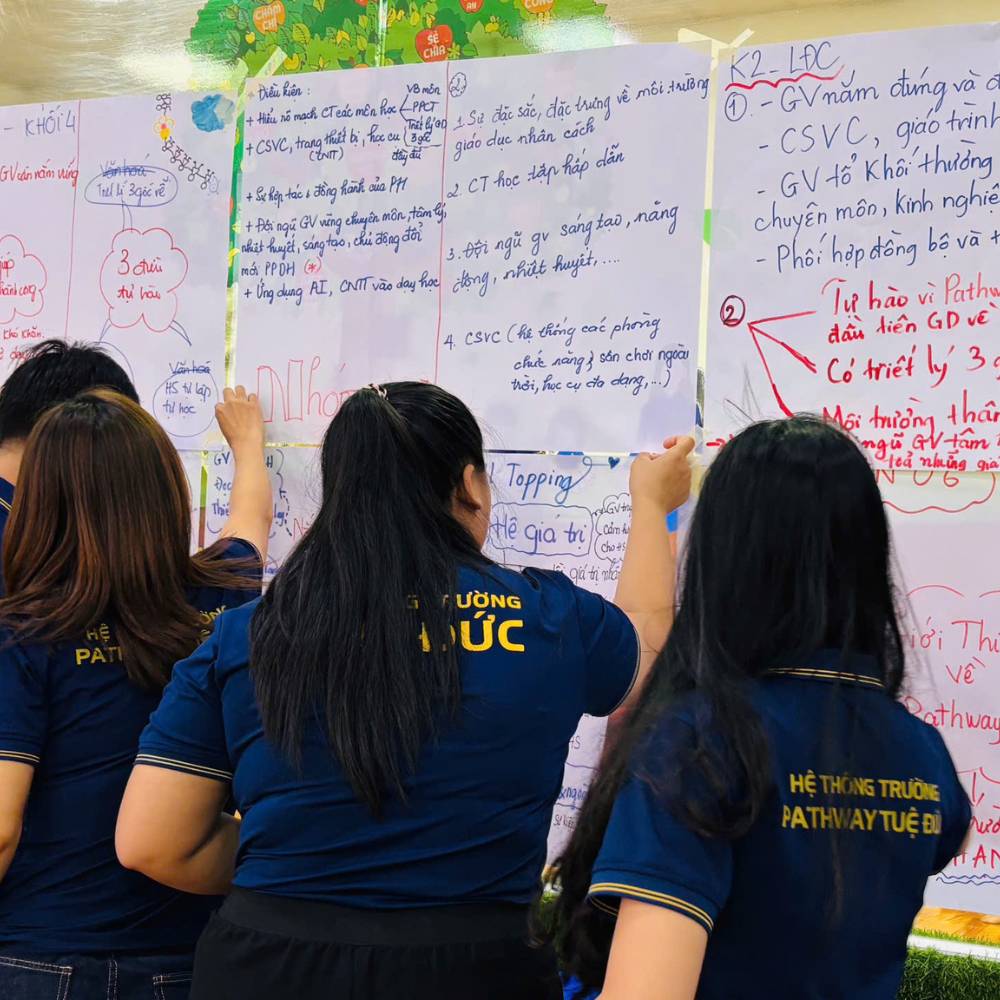 CHĂM
CHỈ
SẺ
CHIA
- KHỐI 4
GV cần nắm vững
Văn hoá
Triết lý 3 gốc rễ
3 điều
tự hào
Văn hoá
HS tự lập
tự học
+ Điều kiện :
+ Hiểu rõ mạch CT các môn học
VB môn
PPCT
Triết lý GD
3 gốc
+ CSVC, trang thiết bị, học cụ
(CNTT)
đầy đủ
+ Sự hợp tác & đồng hành của PH
+ Đội ngũ GV vững chuyên môn, tâm lý,
nhiệt huyết, sáng tạo, chủ động đổi
mới PPDH (*)
+ Ứng dụng AI, CNTT vào dạy học
Nhóm
2.
1. Sự đặc sắc, đặc trưng về môi trường
giáo dục nhân cách
2. CT học tập hấp dẫn
3. Đội ngũ gv sáng tạo, năng
động, nhiệt huyết, ....
4. CSVC (hệ thống các phòng
chức năng, sân chơi ngoài
trời, học cụ đa dạng, ...)
K2 - LĐC
1 - GV nắm đúng và
- CSVC, giáo trình
- GV tổ Khối thường
chuyên môn, kinh nghiệ
- Phối hợp đồng bộ và
2
Tự hào vì Pathw
đầu tiên GD về
Có triết lý 3
Môi trường thân
ngũ GV tâm
toả những giá
Topping
Hệ giá trị
GV
iới Thi
về
Pathway
HỆ
PAT
G TRƯỜNG
ĐỨC
HỆ THỐNG TRƯỜNG
PATHWAY TUỆ ĐỨ